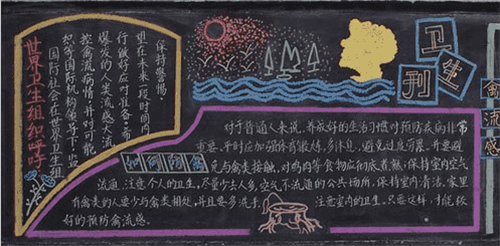 世界卫生组织呼吁
国际社会在世界卫生组
织等国际机构领导下,监
控禽流病情,并对可能
爆发的人类流感大流
行做好应对准备,希
更在未来一段时间内
保持警惕。
卫生刊
禽流感
如何预防
对于普通人来说,养成好的生活习惯对预防疾病非常
重要,平时应加强体育锻炼,多休息,避免过度疲劳。并要避
免与禽类接触,对鸡肉等食物应彻底煮熟,保持室内空气
流通,注意个人的卫生,尽量少去人多,空气不流通的公共场所,保持室内清洁,家里
有禽类的人要少与禽类相处,并且要多洗手,注意室内的卫生,只要这样,才能较
好的预防禽流感。